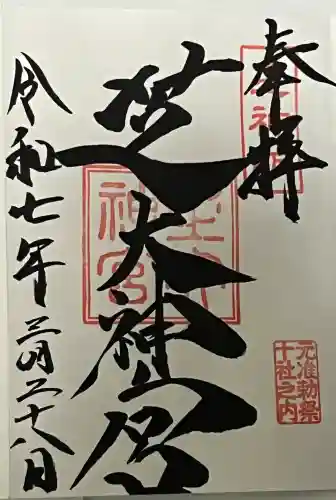 奉拝
芝大神宮
令和七年三月二十八日
元准勅祭
十社之内